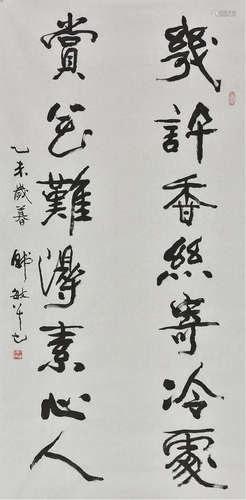 幾許香絲寄冷處
賞花難得素心人
乙未歲暮 韓敏